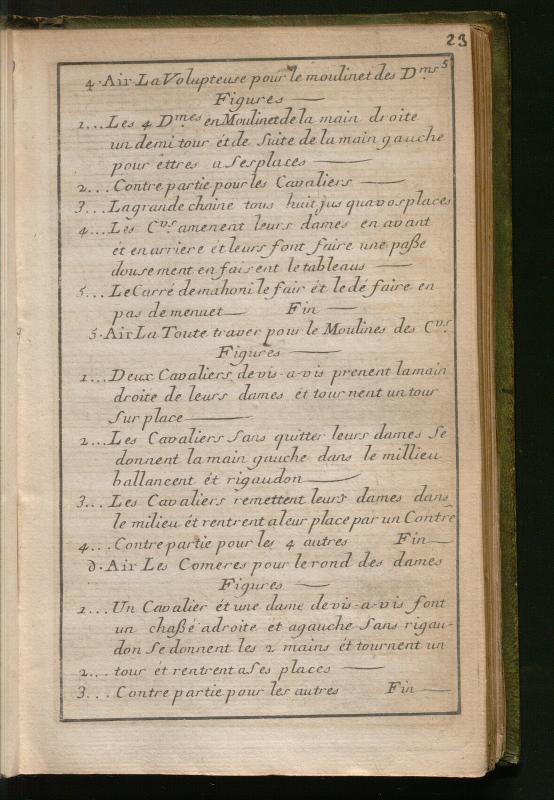 23
4. Air La Volupteuse pour le moulinet des D.mes
Figures
1... Les 4 D.mes en Moulinet de la main droite
un demi tour ét de Suite de la main gauche
pour êttres a Ses places
2... Contre partie pour les Cavaliers
3... La grande chaine tous huit jus qua vos places
4... Les C.vs amenent leurs dames en avant
ét en arriere ét leurs font faire une paße
dousement en faisent le tableaus
5... Le Carré de mahoni le fair ét le dé faire en
pas de menuet Fin
5. Air La Toute traver pour le Moulines des C.vs
Figures
1... Deux Cavaliers de vis-a-vis prenent la main
droite de leurs dames ét tournent un tour
Sur place
2... Les Cavaliers Sans quitter leurs dames Se
donnent la main gauche dans le millieu
ballancent ét rigaudon
3... Les Cavaliers remettent leurs dames dans
le milieu ét rentrent a leur place par un Contre
4... Contre partie pour les 4 autres Fin
6. Air Les Comeres pour le rond des dames
Figures
1... Un Cavalier ét une dame de vis-a-vis font
un chaßé a droite ét a gauche Sans rigau-
don Se donnent les 2 mains ét tournent un
2... tour ét rentrent a Ses places
3... Contre partie pour les autres Fin